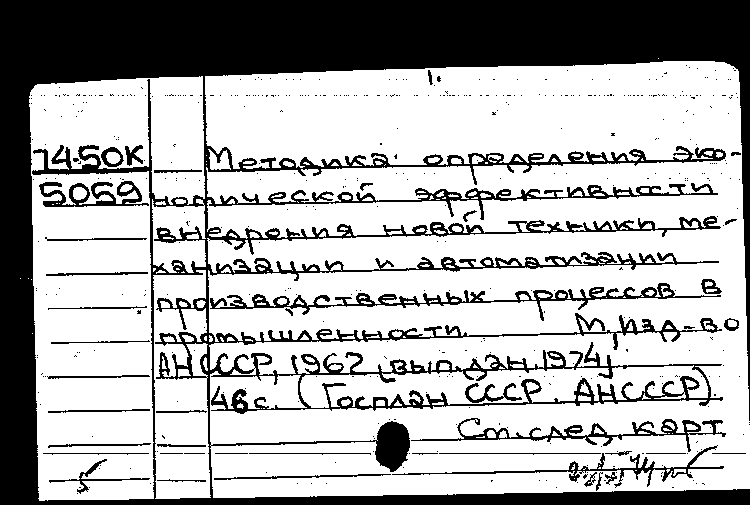 1.
74-50К Методика определения эко-
5059 номической эффективности
внедрения новой техники, ме-
ханизации и автоматизации
производственных процессов в
промышленности. М, Изд-во
АН СССР, 1962 [вып.дан.1974]
46с. (Госплан СССР. АНСССР)
См.след.карт.
5